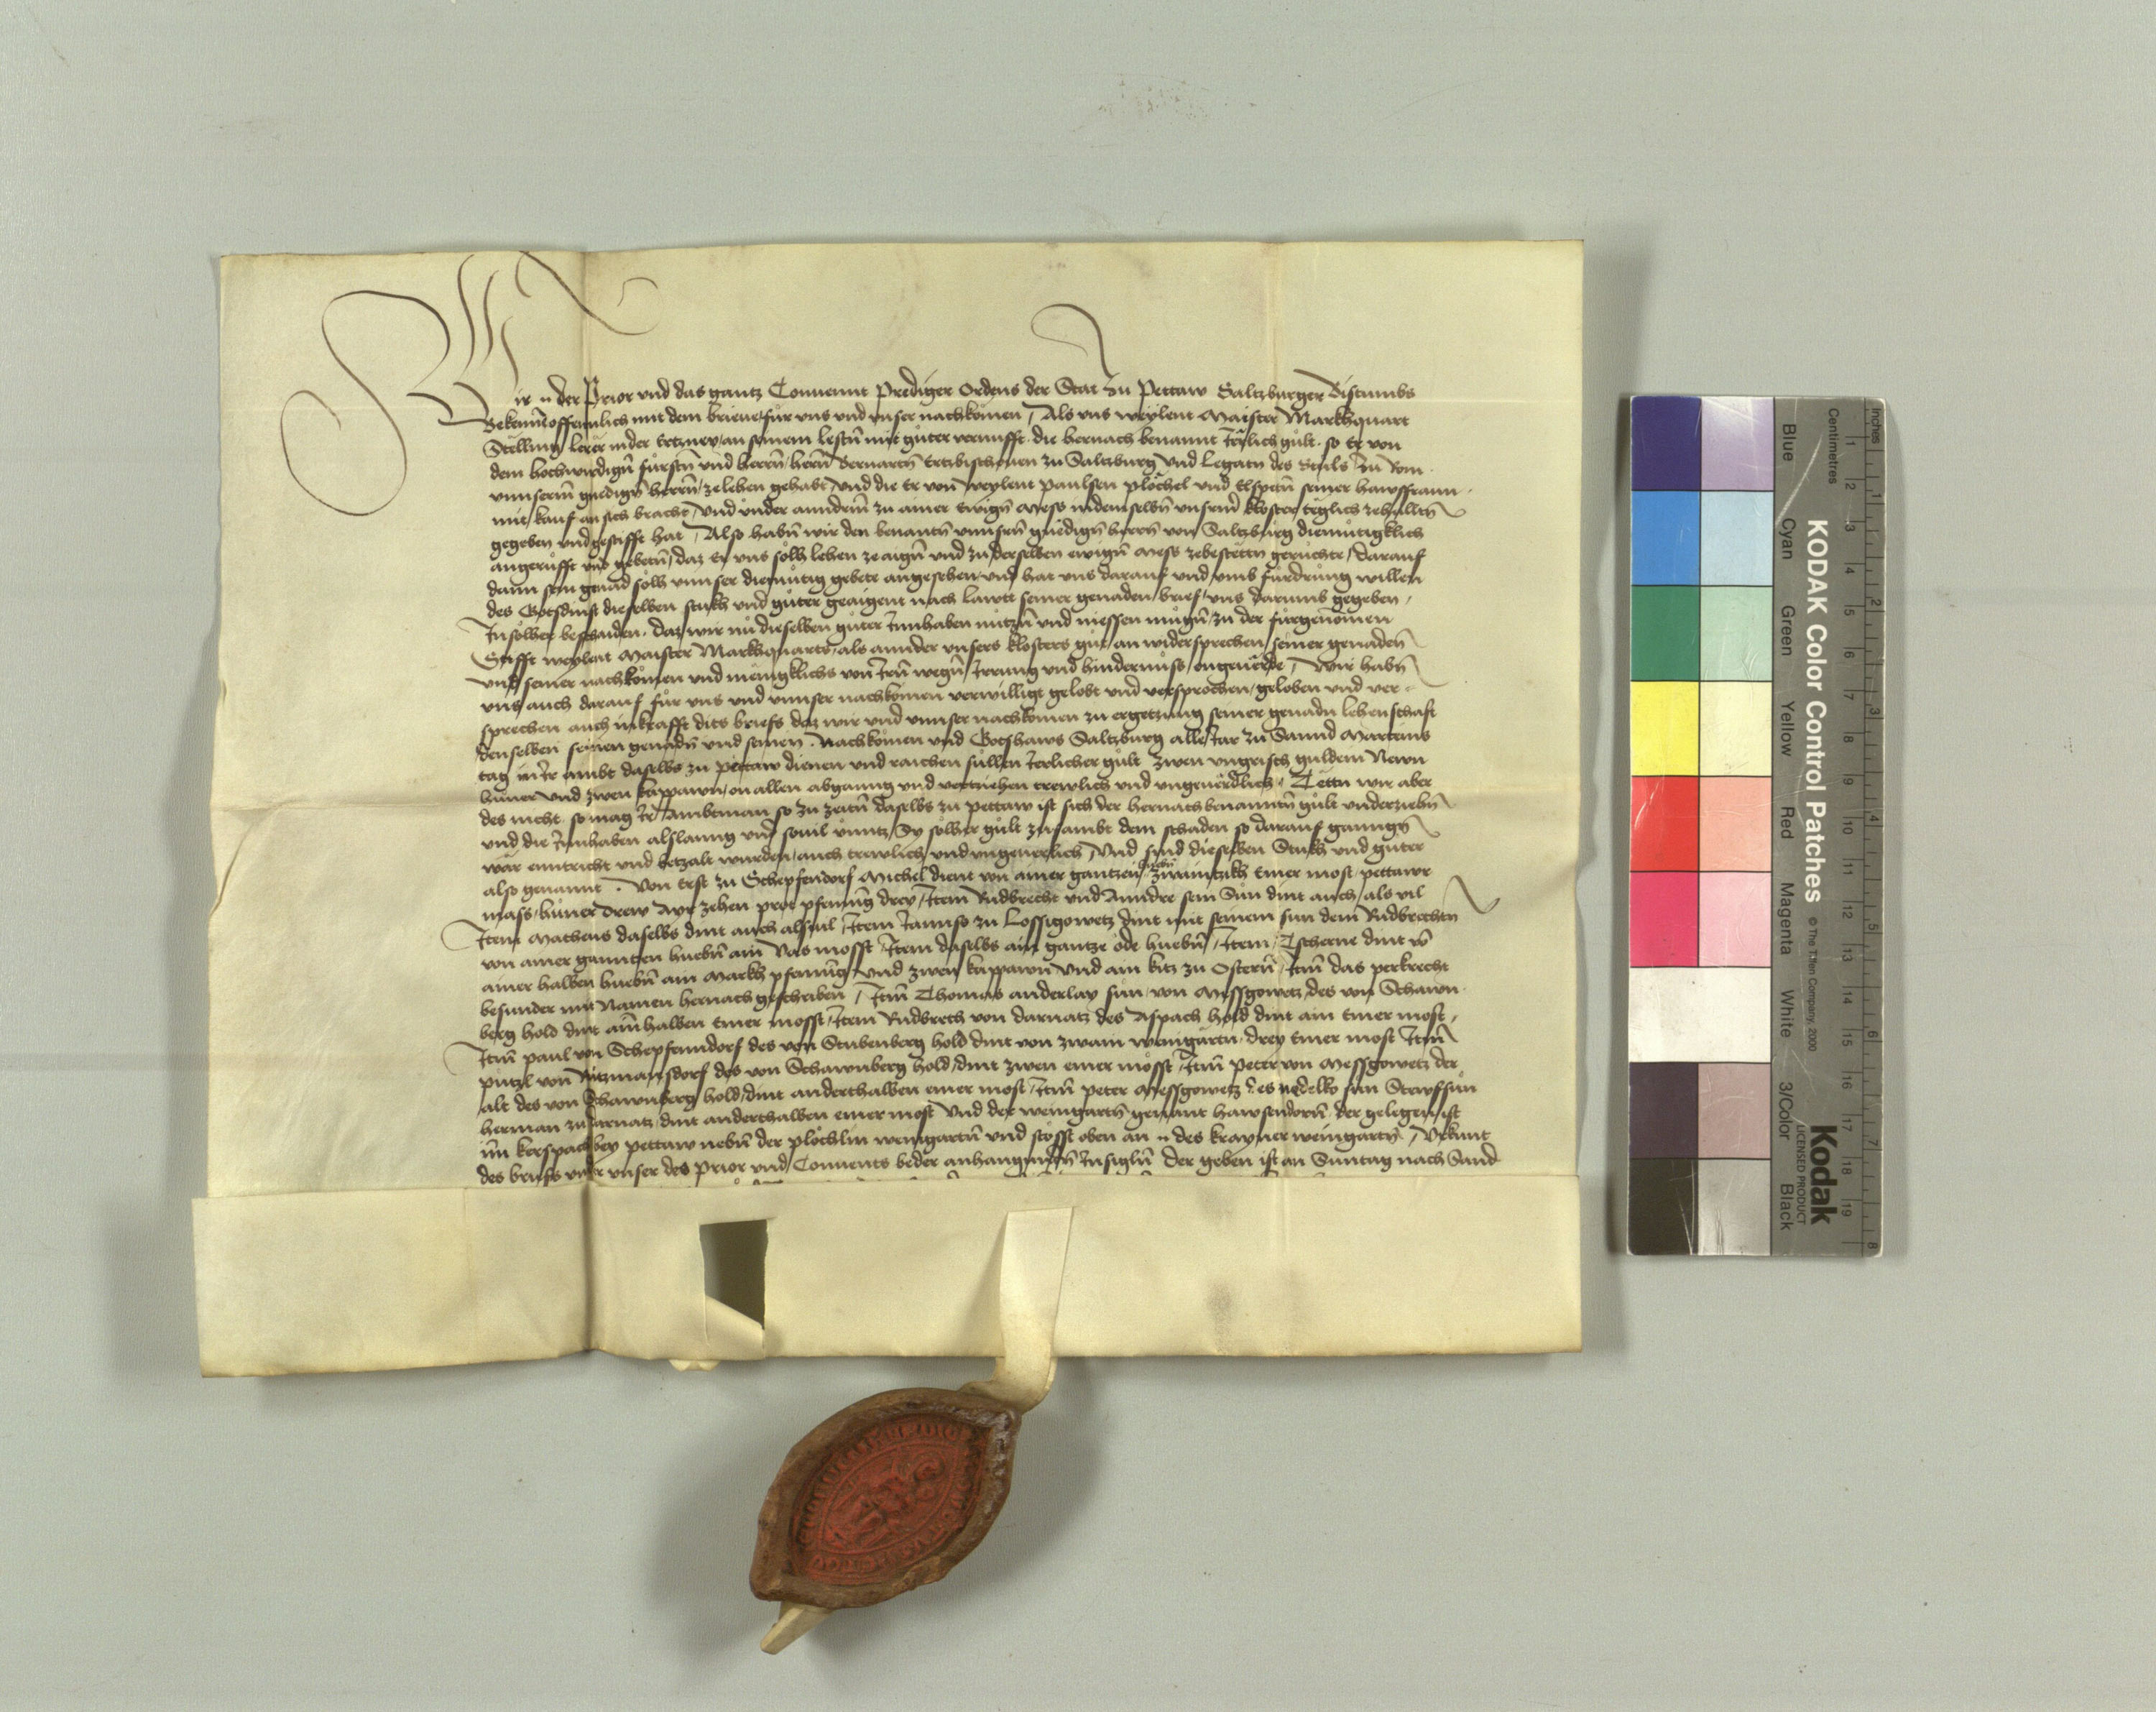 Wir n der Prior vnd das gantz Conuennt Prediger Ordens der Stat zu Pettaw Saltzburger Bistumbs
Bekennen offennlich mit dem brieue für vns vnd vnser nachkomen / Als vns weylent Maister Markhquart
Stelling lerer in der Ertzney an seinem lestn mit guter vernufft die hernach benannt Jerlich gült so Er von
dem hochwirdign fürstn vnd herrn / herrn Bernartn Ertzbischouen zu Saltzburg vnd Legatn des Stuls zu Rom
vnnserm gnedign herrn / ze lehen gehabt / vnd die Er von weylent paulsen plöchel vnd Elspetn seiner hawsfraun
mit kauf an sich bracht / vnd vnder anndrm zu ainer Ewign Mess in demselbn vnserm kloster teglich zehalltn
gegeben vnd gestifft hat / Also habn wir den benantn vnnsern gnedign herrn von Saltzburg diemütigklich
angerüfft vnd gebetn / daz Er vns sölh lehen ze aign vnd zu derselben ewign Mess zebestettn geruchte / darauf
dann sein genad sölh vnnser diemütig gebete angesehen vnd hat vns darauf vnd vmb fürdrung willen
des Gotsdinst dieselben stukh vnd güter geaigent nach lawtt seiner genaden brief / vns darumb gegeben /
In sölher beschaiden daz wir nu dieselben güter Innhaben nützn vnd niessen mugn / zu der fürgenomen
Stifft weylent Maister Markhquarts / als annder vnsers klosters güt / an widersprechen / seiner genaden
vnd seiner nachkömen vnd menigklichs von Irn wegn / Irrung vnd hindernüss / ongeuerde / Wir habn
vns auch darauf für vns vnd vnnser nachkomen verwilligt gelobt vnd versprochen / geloben vnd ver-
sprechen auch in krafft dits briefs daz wir vnd vnnser nachkomen zu ergetzung seiner genadn lehenschaft
denselben seinen genadn vnd seinen Nachkomen vnd Gotshaws Saltzburg alle Jar zu Sannd Marteins
tag in Ir ambt daselbs zu pettaw dienen vnd raichen süllen Jerlicher gült zwen vngrisch guldein Newn
hüner vnd zwen kappawn / on allen abganng vnd verziehen trewlich vnd vngeuerdlich / Tettn wir aber
des nicht so mag Ir Ambtman so zu zeitn daselbs zu pettaw ist sich der hernach benanntn gült vnderziehn
vnd die Innhaben alslanng vnd souil vnntz Sy sölher gült zusambt dem schaden so darauf ganngn
wär enntricht vnd betzalt wurden / auch trewlich vnd vngeuerlich / Vnd sind dieselben Stukh vnd güter
also genannt . Von Erst zu Schepfendorf Michel dient von ainer gantzen huebn zwaintzikh Emer most pettawr
mass / hüner drew Ayr zehen prot pfennig drey / Item Rudbrecht vnd Anndre sein Sün dint auch / als vil
Item Matheus daselbs dint auch alsuil / Item Jannso zu Lossigowetz dint mit seinem sun dem Rudbrechtn
von ainer ganntzen huebn ain Vas mosst / Item daselbs ain gantze öde huebn / Item Tscherne dint von
ainer halben huebn ain Markh pfennig / vnd zwen kappawn vnd ain kitz zu Ostern / Item das perkrecht
besunder mit Namen hernach geschriben / Item Thomas anderlay sun von Messgowetz des von Schawn
berg hold dint ain halben Emer mosst / Item Rudbrech von darnatz des Aspach hold dint ain Emer most /
Item paul von Schepfenndorf des von Stubenberg hold dint von zwain weingartn / drey Emer most Item
pützl von Ritzmansdorf des von Schawnberg hold / dint zwen emer mosst / Item peter von Messgowetz der
alt des von Schawnberg hold / dint anderthalben emer most / Item peter Messgowetz des nedelko sun Stewffsün
herman zu darnatz / dint anderthalben emer most Vnd der weingartn genant hawsendorn der gelegen ist
im kerspach bey pettaw nebn der plöchlin weingartn vnd stösst oben an n des krayner weingartn / Vrkunt
des briefs vnder vnser des prior vnd Conuents beder anhangunden Insigln Der geben ist an Suntag nach Sand
KODAK Color Control Patches
© The Tiffen Company, 2000
Kodak
LICENSED PRODUCT
Inches
Centimetres
1 2 3 4 5 6 7 8
1 2 3 4 5 6 7 8 9 10 11 12 13 14 15 16 17 18 19
Blue
Cyan
Green
Yellow
Red
Magenta
White
3/Color
Black